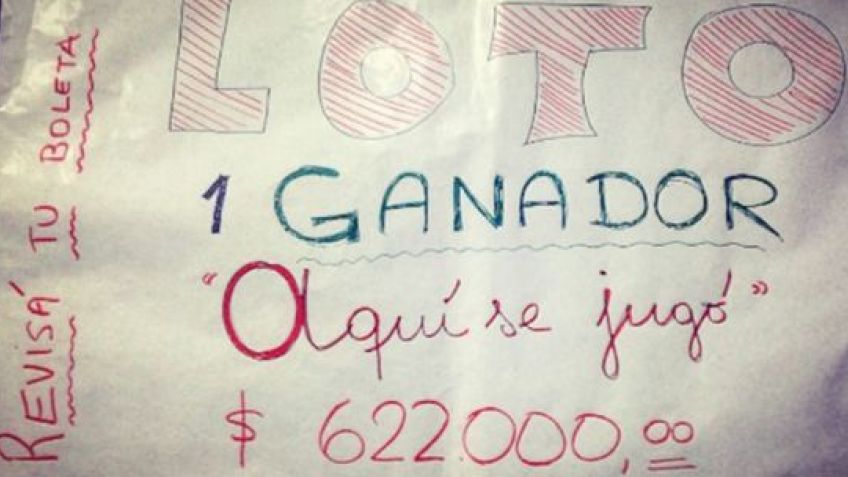 LOTO
1 GANADOR
"Aquí se jugó"
$ 622.000,00
REVISÁ TU BOLETA